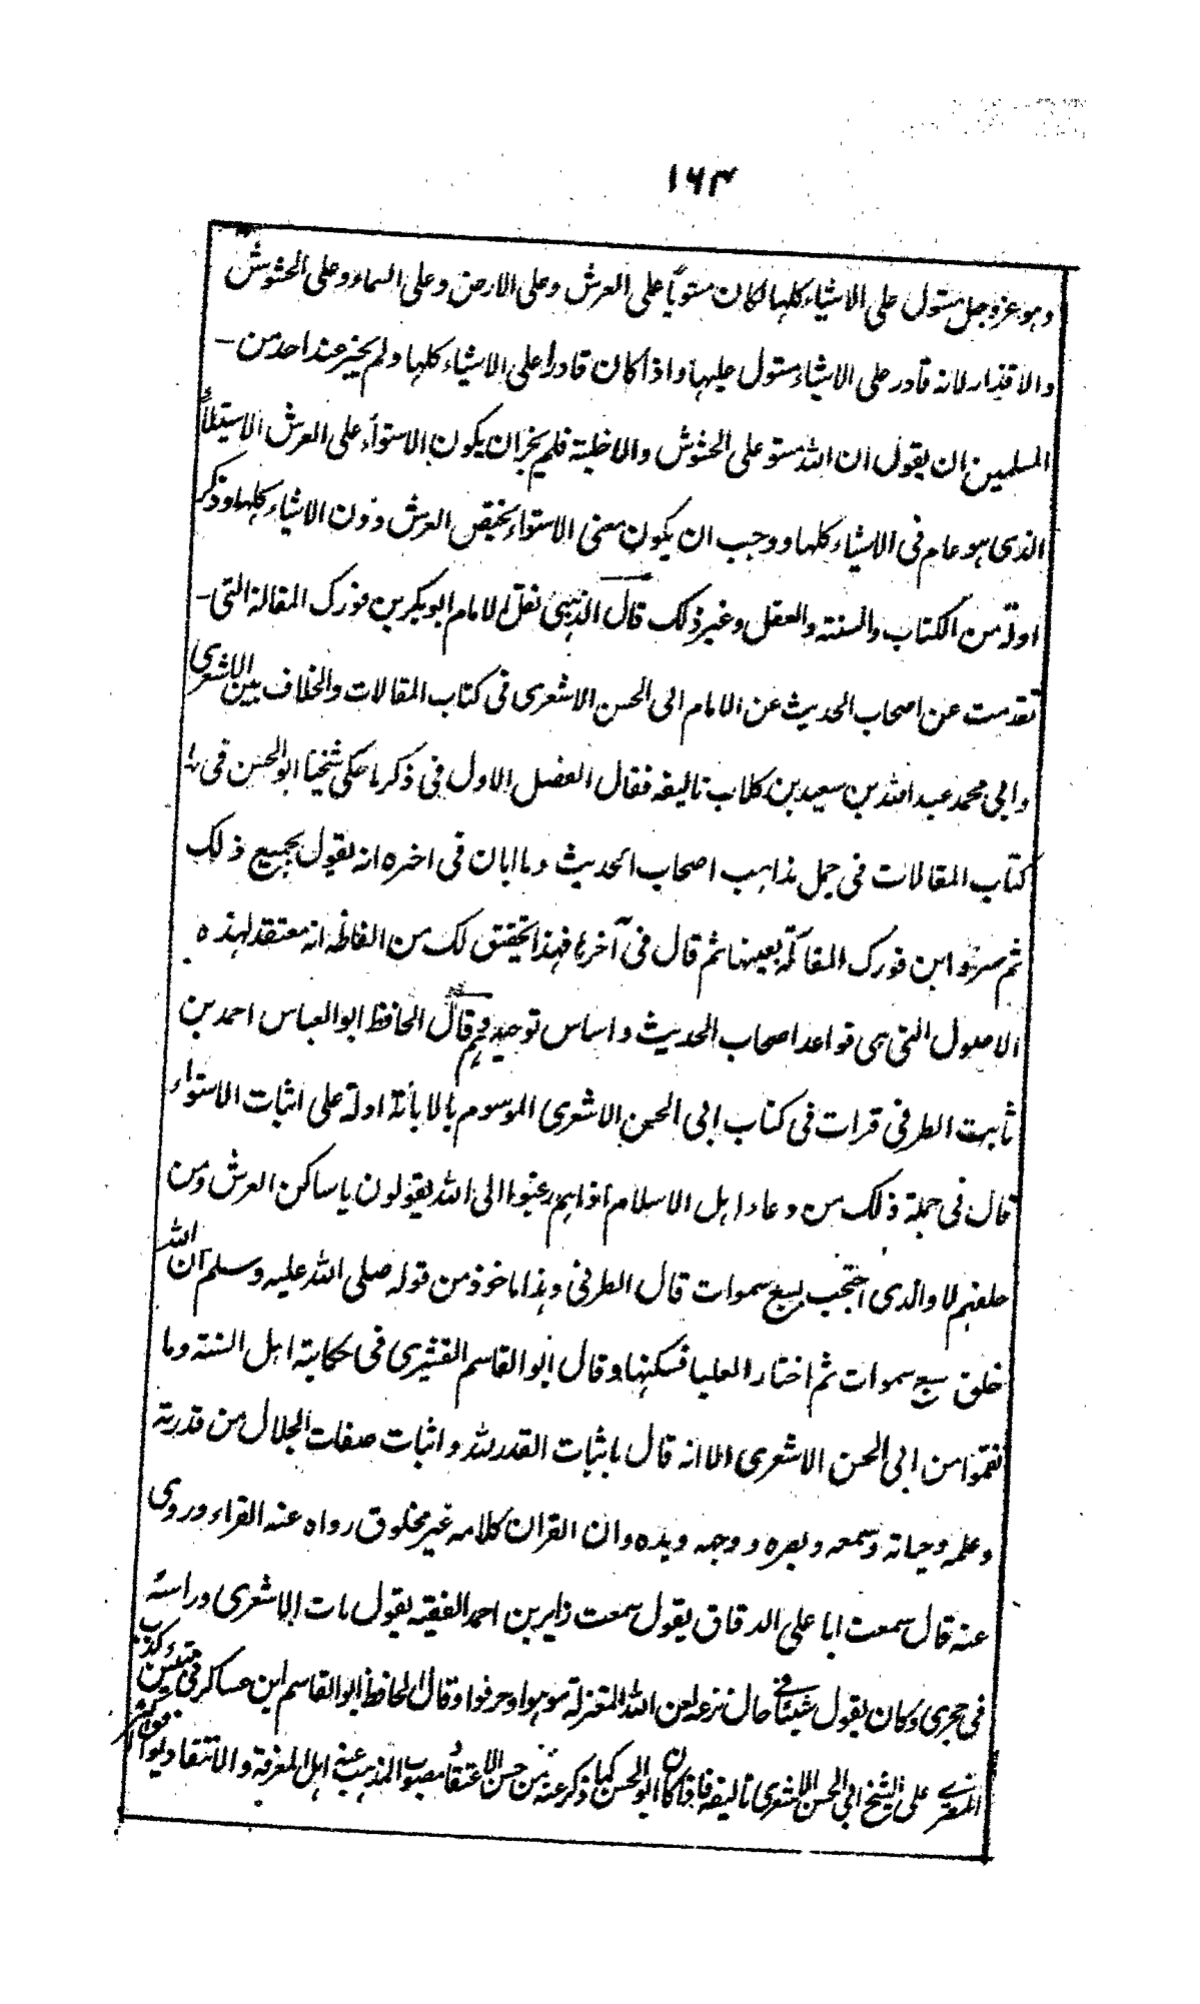 ١٦٣
وهو عزوجل مستول على الاشياء كلها لكان مستويا على العرش وعلى الارض وعلى السماء وعلى الحشوش
والاقذار لانه قادر على الاشياء مستول عليها واذا كان قادرا على الاشياء كلها ولم يجز عند احد من
المسلمين ان يقول ان الله مستو على الحشوش والاخلية فلم يجز ان يكون الاستواء على العرش الاستيلاء
الذى هو عام فى الاشياء كلها ووجب ان يكون معنى الاستواء يختص العرش دون الاشياء كلها وذكر
ادلة من الكتاب والسنة والعقل وغير ذلك قال الذهبى نقل الامام ابو بكر بن فورك المقالة التى
تقدمت عن اصحاب الحديث عن الامام ابى الحسن الاشعرى فى كتاب المقالات والخلاف بين الاشعرى
وابى محمد عبد الله بن سعيد بن كلاب تاليفه فقال الفصل الاول فى ذكر ما حكى شيخنا ابو الحسن فى
كتاب المقالات فى جمل مذاهب اصحاب الحديث وما ابان فى اخره انه يقول بجميع ذلك
ثم سرد ابن فورك المقالة بعينها ثم قال فى آخرها فهذا تحقيق لك من الفاظه انه معتقد لهذه
الاصول التى هى قواعد اصحاب الحديث واساس توحيدهم وقال الحافظ ابو العباس احمد بن
ثابت الطرقى قرات فى كتاب ابى الحسن الاشعرى الموسوم بالابانة ادلة على اثبات الاستواء
قال فى جملة ذلك من دعاء اهل الاسلام اذا هم رغبوا الى الله يقولون يا ساكن العرش ومن
حلفهم لا والذى احتجب بسبع سموات قال الطرقى وهذا ماخوذ من قوله صلى الله عليه وسلم ان الله
خلق سبع سموات ثم اختار العليا فسكنها وقال ابو القاسم القشيرى فى حكاية اهل السنة وما
نقموا من ابى الحسن الاشعرى الا انه قال باثبات القدر لله واثبات صفات الجلال من قدرته
وعلمه وحياته وسمعه وبصره ووجهه ويده وان القران كلامه غير مخلوق رواه عنه القراء وروى
عنه قال سمعت ابا على الدقاق يقول سمعت زاهر بن احمد الفقيه يقول مات الاشعرى وراسه
فى حجرى وكان يقول شيئا فى حال نزعه لعن الله المعتزلة موهوا وحرفوا وقال الحافظ ابو القاسم ابن عساكر فى تبيين كذب
المفترى على الشيخ ابى الحسن الاشعرى تاليفه فاذا كان ابو الحسن كما ذكر عنه من حسن الاعتقاد مصوب المذهب عند اهل المعرفة والانتقاد يوافقه